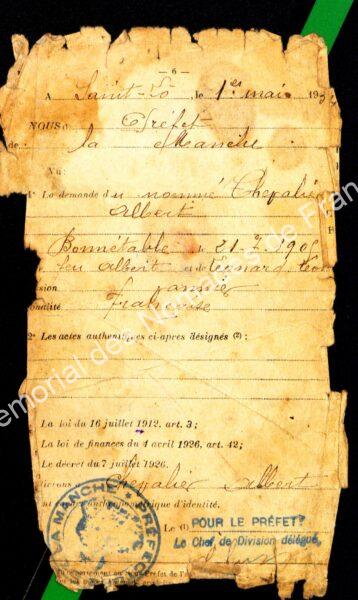 — 6 —
A Saint-Lô, le 1er mai 193
NOUS Préfet
de la Manche
Vu :
1° La demande du nommé Chevalier
Albert
Bonnétable 21-7-1905
feu Albert et de
vannier
nalité française
2° Les actes authentiques ci-après désignés (2) :
La loi du 16 juillet 1912, art. 3 ;
La loi de finances du 4 avril 1926, art. 42 ;
Le décret du 7 juillet 1926.
Chevalier Albert
anthropométrique d'identité.
Le (1) POUR LE PRÉFET
Le Chef de Division délégué,
LA MANCHE PRÉFEC
Memorial des Nomades de Fran